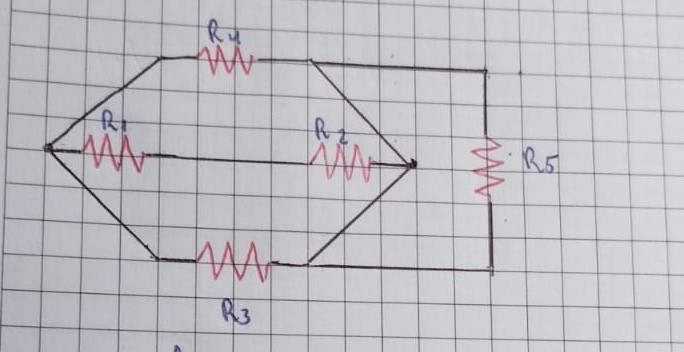 R4
R1
R2
R5
R3